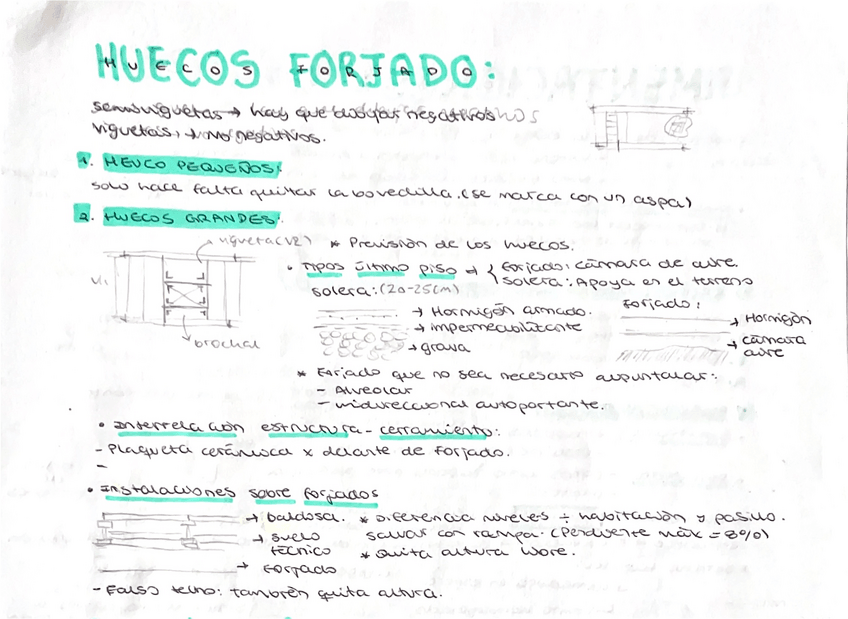 HUECOS FORJADO:
semiviguetas → hay que dibujar negativos
viguetas, → no negativos.
1. HEUCO PEQUEÑOS:
solo hace falta quitar la bovedilla. (se marca con un aspa)
2. HUECOS GRANDES:
vigueta (V2)
* Previsión de los huecos.
V1
brochal
• Tipos último piso → { Forjado: cámara de aire.
Solera: Apoya en el terreno
solera: (20-25cm)
→ Hormigón armado.
→ impermeabilitante
→ grava
Forjado:
→ Hormigón
→ cámara
aire
* Forjado que no sea necesario apuntalar:
- Alveolar
- unidireccional autoportante.
• Interrelación estructura - cerramiento:
- Plaqueta cerámica x delante de forjado.
-
• Instalaciones sobre forjados
→ baldosa.
→ suelo
técnico
→ Forjado
* Diferencia niveles ÷ habitación y pasillo.
salvar con rampa. (Pendiente máx = 8%)
* Quita altura libre.
- Falso techo: también quita altura.